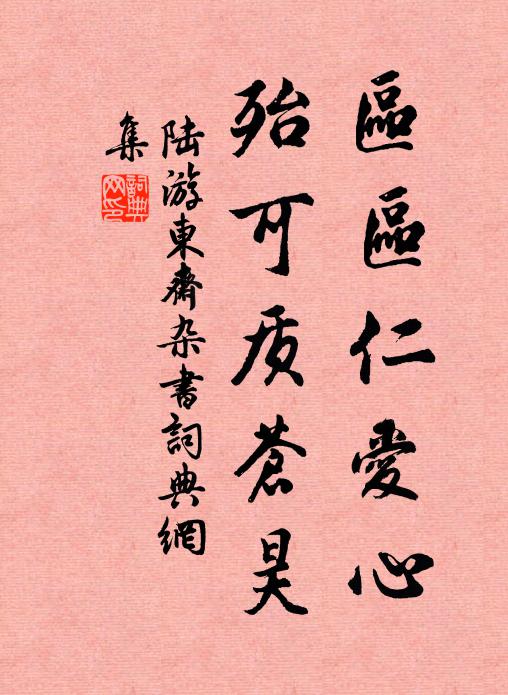 區區仁愛心
殆可质蒼昊
陆游東齋杂書詞典網
集
詞典网印